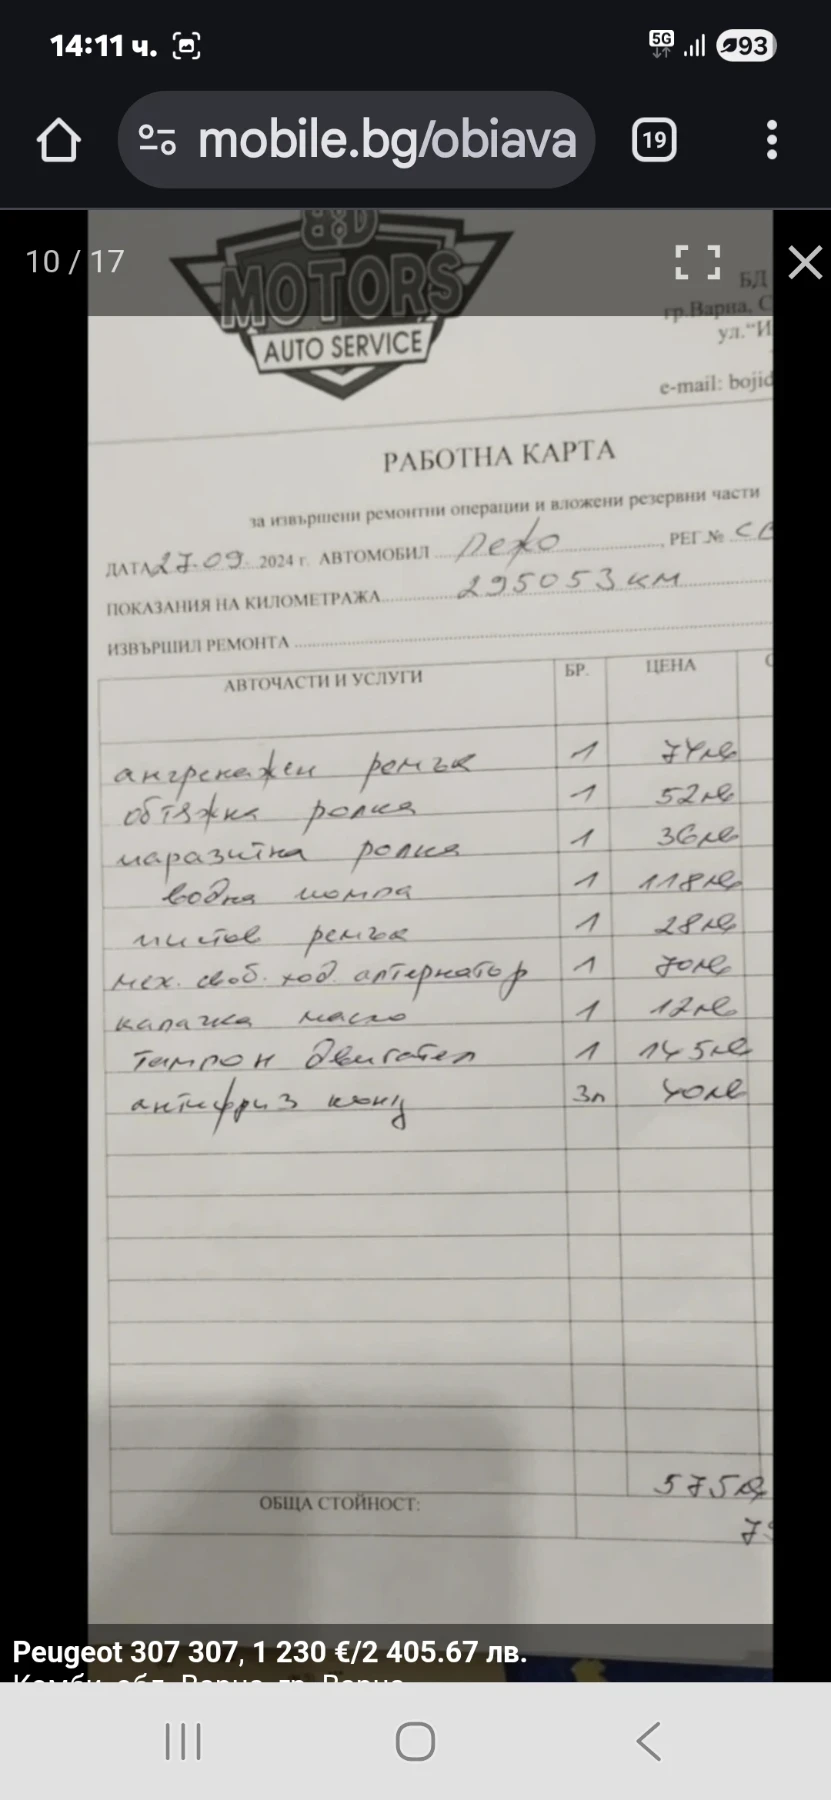 14:11 ч. 5G 93
mobile.bg/obiava 19
10 / 17
B&D
MOTORS
AUTO SERVICE
БД
гр.Варна, С
ул."И
e-mail: bojid
РАБОТНА КАРТА
за извършени ремонтни операции и вложени резервни части
ДАТА 27.09. 2024 г. АВТОМОБИЛ Пежо, РЕГ.№ СВ
ПОКАЗАНИЯ НА КИЛОМЕТРАЖА 295053 км
ИЗВЪРШИЛ РЕМОНТА
АВТОЧАСТИ И УСЛУГИ БР. ЦЕНА
ангренажен ремък 1 74лв
обтяжна ролка 1 52лв
паразитна ролка 1 36лв
водна помпа 1 118лв
пистов ремък 1 28лв
мех. своб. ход алтернатор 1 70лв
капачка масло 1 12лв
тампон двигател 1 145лв
антифриз конц 3л 40лв
575лв
ОБЩА СТОЙНОСТ:
Peugeot 307 307, 1 230 €/2 405.67 лв.
Комби, обл. Варна, гр. Варна